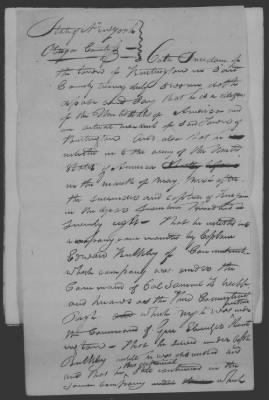 State of New York
Otsego County } ss Cato Freedom of
the town of Burlington in said
County being duly sworn doth
depose and say that he is a citizen
of the United States of America and
an actual resident of said Town of
Burlington And also that he
enlisted in the army of the United
States of America
in the month of May next after
the surrender and capture of Burgoyne
in the year Seventeen hundred &
Seventy eight - That he enlisted in
a company commanded by Captain
Edward Bulkley of Connecticut
which company was under the
Command of Col Samuel B Webb
and known as the Third Connecticut
Regt and which Regt was under
the Command of Gen
That he served under Capt
Bulkley until he was
and that he continued in the
same company which